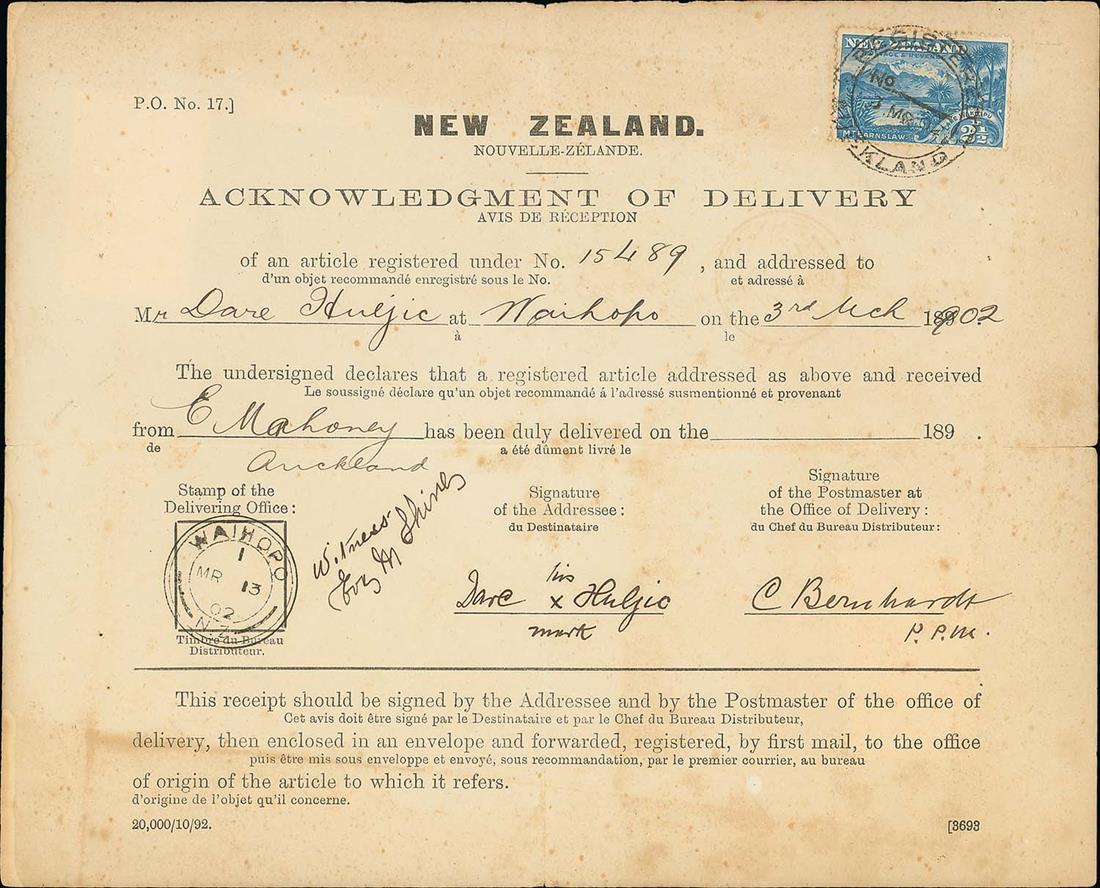 P.O. No. 17.]
NEW ZEALAND
MT EARNSLAW
2½
REGISTERED
No.
AUCKLAND
NEW ZEALAND.
NOUVELLE-ZÉLANDE.
ACKNOWLEDGMENT OF DELIVERY
AVIS DE RÉCEPTION
of an article registered under No. 15489, and addressed to
d'un objet recommandé enregistré sous le No. et adressé à
Mr Dare Huljic at Waihopo on the 3rd Mch 189 902.
à le
The undersigned declares that a registered article addressed as above and received
Le soussigné déclare qu'un objet recommandé á l'adressé susmentionné et provenant
from E Mahoney has been duly delivered on the 189 .
de a été dûment livré le
Auckland
Stamp of the
Delivering Office:
WAIHOPO
1
MR 13
02
N.Z.
Timbre du Bureau
Distributeur.
Witness
M
Signature
of the Addressee:
du Destinataire
his
Dare x Huljic
mark
Signature
of the Postmaster at
the Office of Delivery:
du Chef du Bureau Distributeur:
C Bernhardt
P.P.M.
This receipt should be signed by the Addressee and by the Postmaster of the office of
Cet avis doit être signé par le Destinataire et par le Chef du Bureau Distributeur,
delivery, then enclosed in an envelope and forwarded, registered, by first mail, to the office
puis être mis sous enveloppe et envoyé, sous recommandation, par le premier courrier, au bureau
of origin of the article to which it refers.
d'origine de l'objet qu'il concerne.
20,000/10/92.
[3693